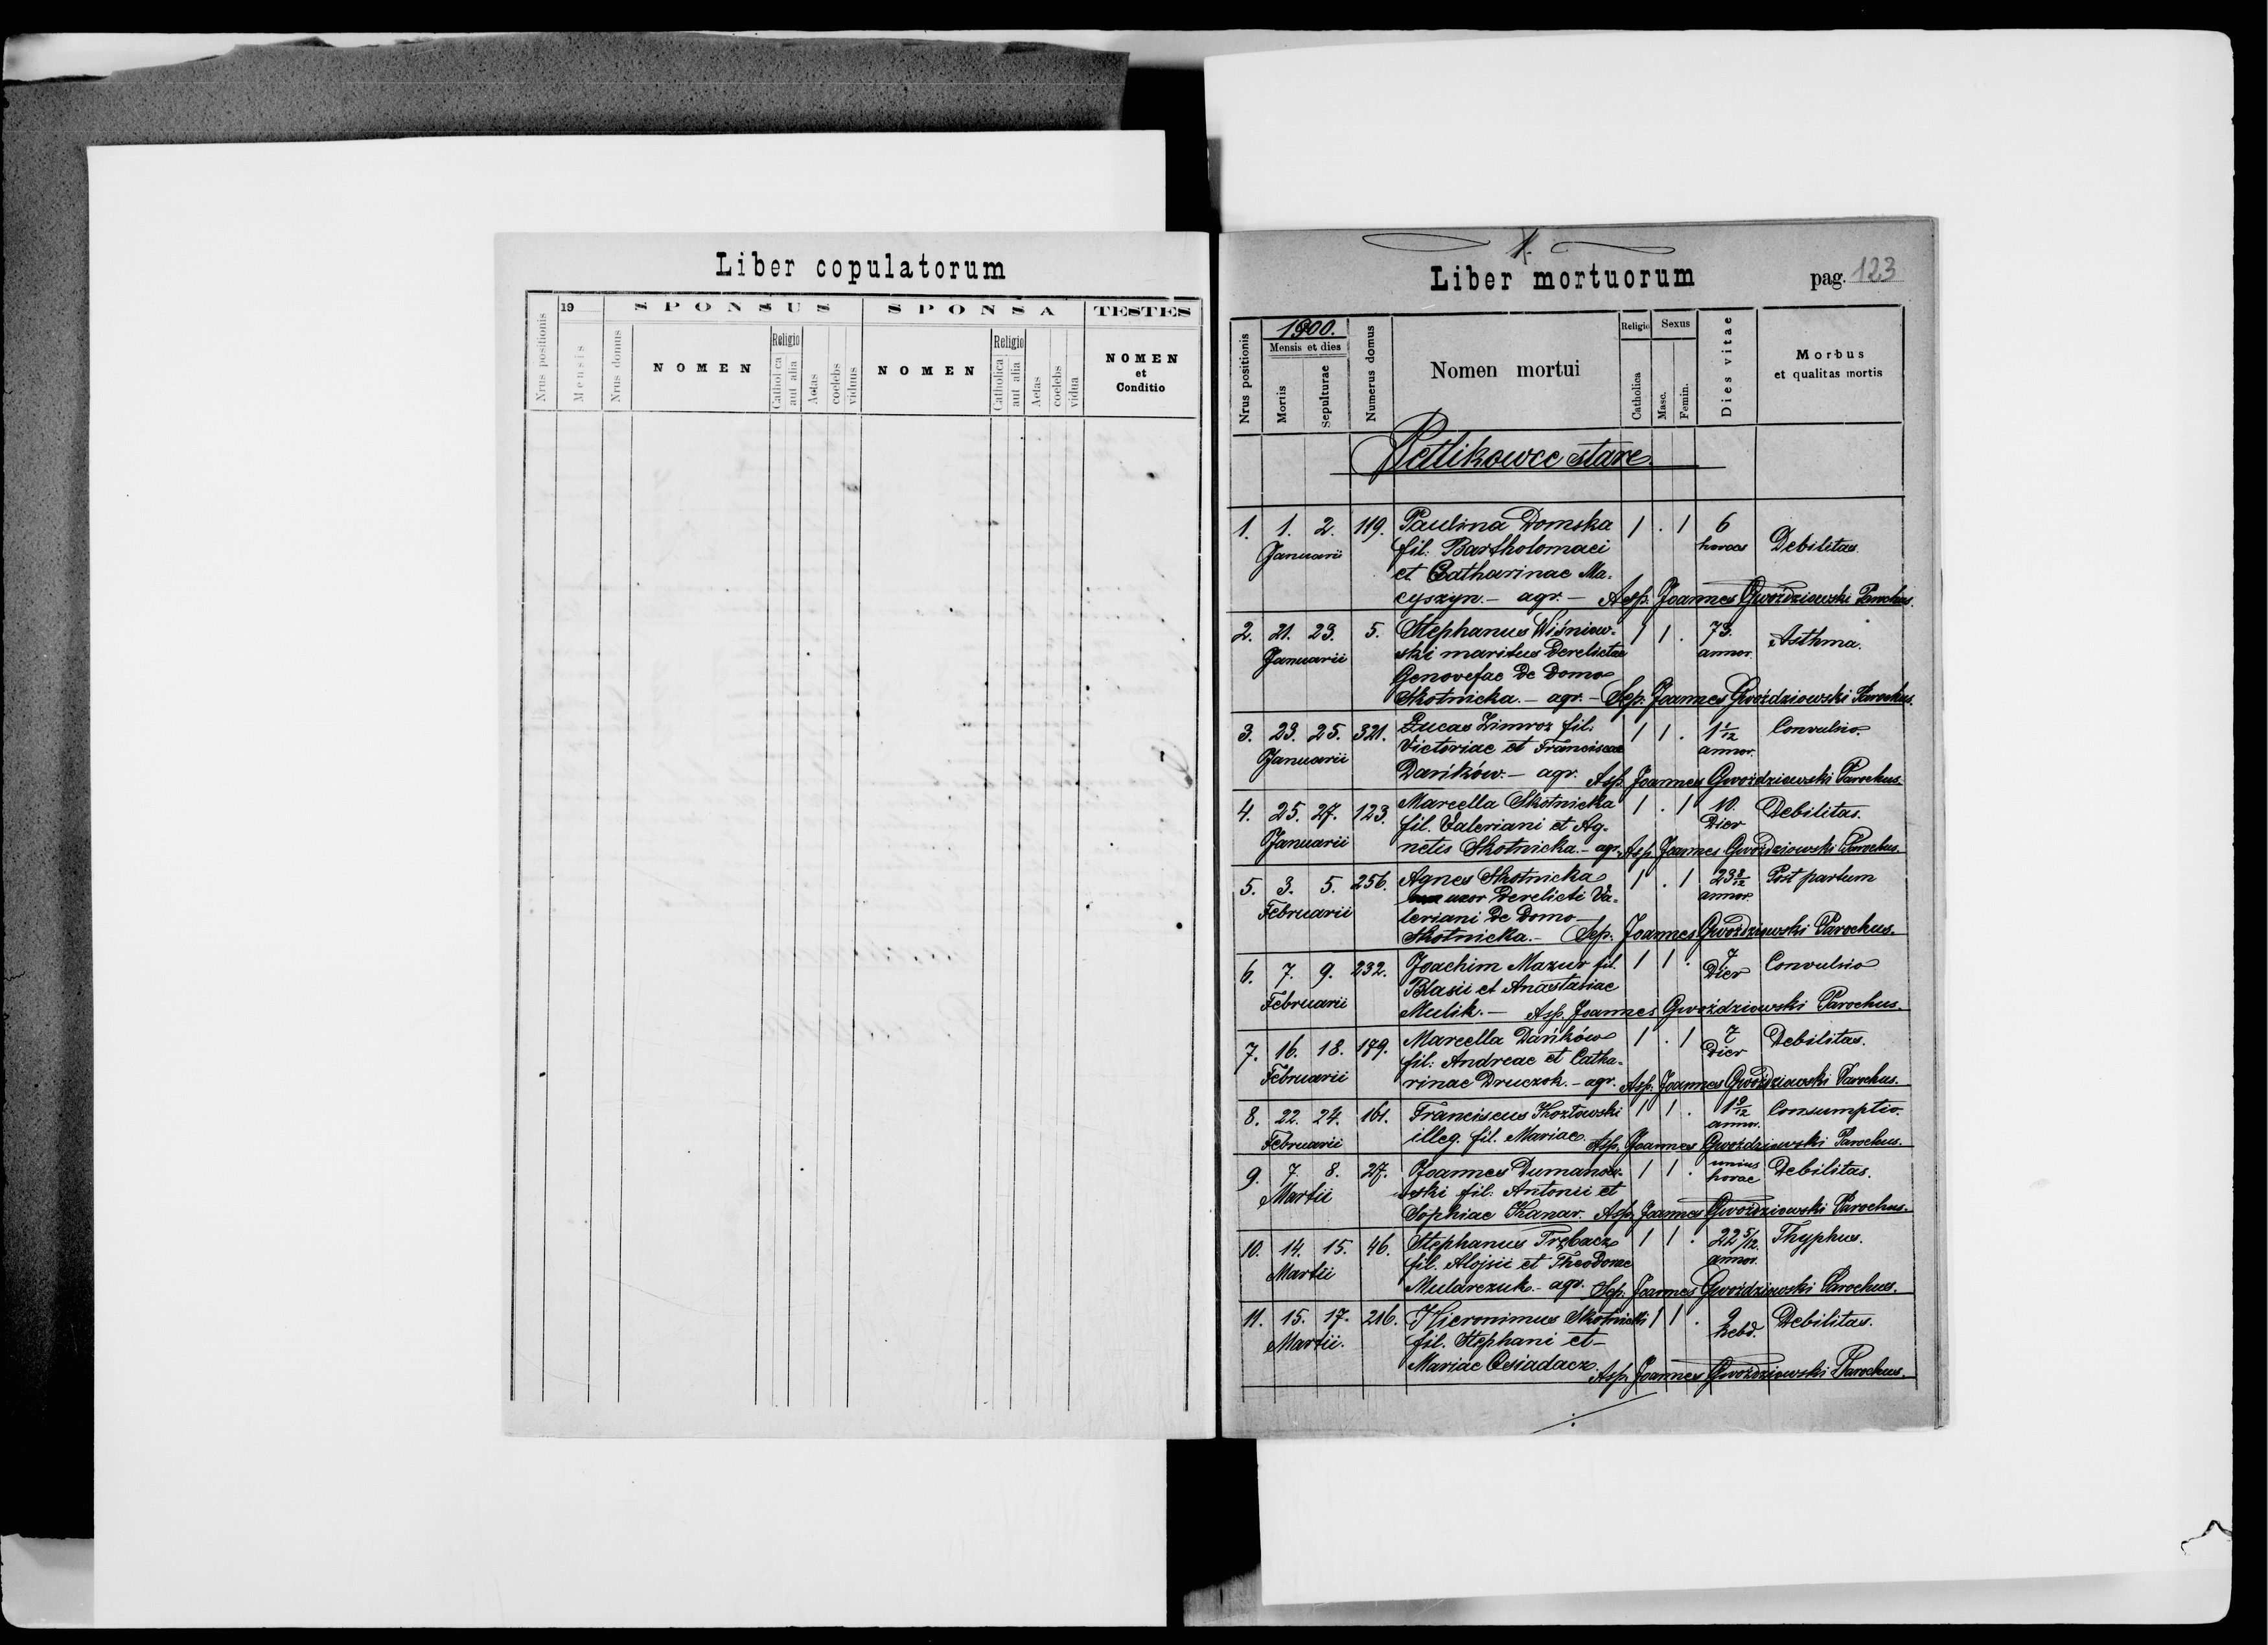 Liber copulatorum
Nrus positionis
19
Mensis
Nrus domus
SPONSUS
NOMEN
Religio
Catholica
aut alia
Aetas
coelebs
viduus
SPONSA
NOMEN
Religio
Catholica
aut alia
Aetas
coelebs
vidua
TESTES
NOMEN
et
Conditio
1.
Liber mortuorum
pag. 123
Nrus positionis
1900.
Mensis et dies
Mortis
Sepulturae
Numerus domus
Nomen mortui
Religio
Catholica
Sexus
Masc.
Femin.
Dies vitae
Morbus
et qualitas mortis
Petlikowce stare
1. 1. 2. 119. Paulina Domska 1 . 1 6
Januarii fil. Bartholomaei horas Debilitas.
et Catharinae Ma-
cyszyn. – agr. – Asp. Joannes Gwoździowski Parochus.
2. 21. 23. 5. Stephanus Wiśniow- 1 1 . 73. Asthma.
Januarii ski maritus derelictae annor.
Genovefae de domo
Skotnicka. – agr. – Sep. Joannes Gwoździowski Parochus.
3. 23. 25. 321. Lucas Zimroz fil. 1 1 . 1 1/12 Convulsio.
Januarii Victoriae et Franciscae annor.
Dańków. – agr. Asp. Joannes Gwoździowski Parochus.
4. 25. 27. 123. Marcella Skotnicka 1 . 1 10. Debilitas.
Januarii fil. Valeriani et Ag- Dier
netis Skotnicka. – agr. Asp. Joannes Gwoździowski Parochus.
5. 3. 5. 256. Agnes Skotnicka 1 . 1 23 Post partum
Februarii uxor derelicti Va- annor.
leriani de domo
Skotnicka. – Sep. Joannes Gwoździowski Parochus.
6. 7. 9. 232. Joachim Mazur fil. 1 1 . 7 Convulsio
Februarii Blasii et Anastasiae Dier
Mulik. – Asp. Joannes Gwoździowski Parochus.
7. 16. 18. 179. Marcella Dańków 1 . 1 7 Debilitas.
Februarii fil. Andreae et Catha- Dier
rinae Druczok. – agr. Asp. Joannes Gwoździowski Parochus.
8. 22. 24. 161. Franciscus Kozłowski 1 1 . 1 9/12 Consumptio.
Februarii illeg. fil. Mariae. annor. Asp. Joannes Gwoździowski Parochus.
9. 7. 8. 27. Joannes Dumanow- 1 1 . unius Debilitas.
Martii ski fil. Antonii et horae
Sophiae Kanar. Asp. Joannes Gwoździowski Parochus.
10. 14. 15. 46. Stephanus Trębacz 1 1 . 22 5/12. Thyphus.
Martii fil. Alojsii et Theodorae annor.
Mularczuk. – agr. Sep. Joannes Gwoździowski Parochus.
11. 15. 17. 216. Hieronimus Skotnicki 1 1 . 2 Debilitas.
Martii. fil. Stephani et hebd.
Mariae Osiadacz. Asp. Joannes Gwoździowski Parochus.